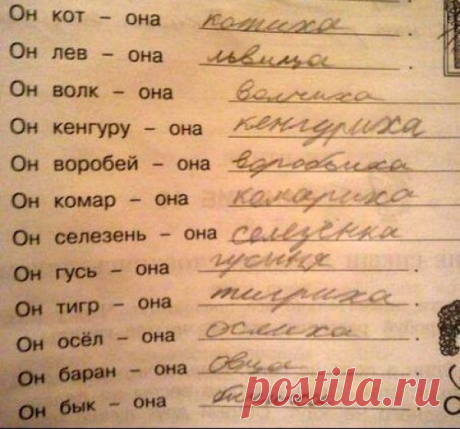 Он кот – она котиха
Он лев – она львица.
Он волк – она волчиха
Он кенгуру – она кенгуриха
Он воробей – она воробьиха
Он комар – она комариха
Он селезень – она селезёнка
Он гусь – она гусиня.
Он тигр – она тигриха.
Он осёл – она ослиха.
Он баран – она овца.
Он бык – она
postila.ru